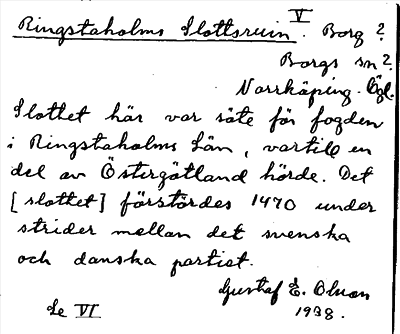 V
Ringstaholms Slottsruin. Borg?
Borgs sn?
Norrköping. Ögl.
Slottet här var säte för fogden
i Ringstaholms län, vartill en
del av Östergötland hörde. Det
[slottet] förstördes 1470 under
strider mellan det svenska
och danska partiet.
Gustaf E. Olson
Se VI 1938.